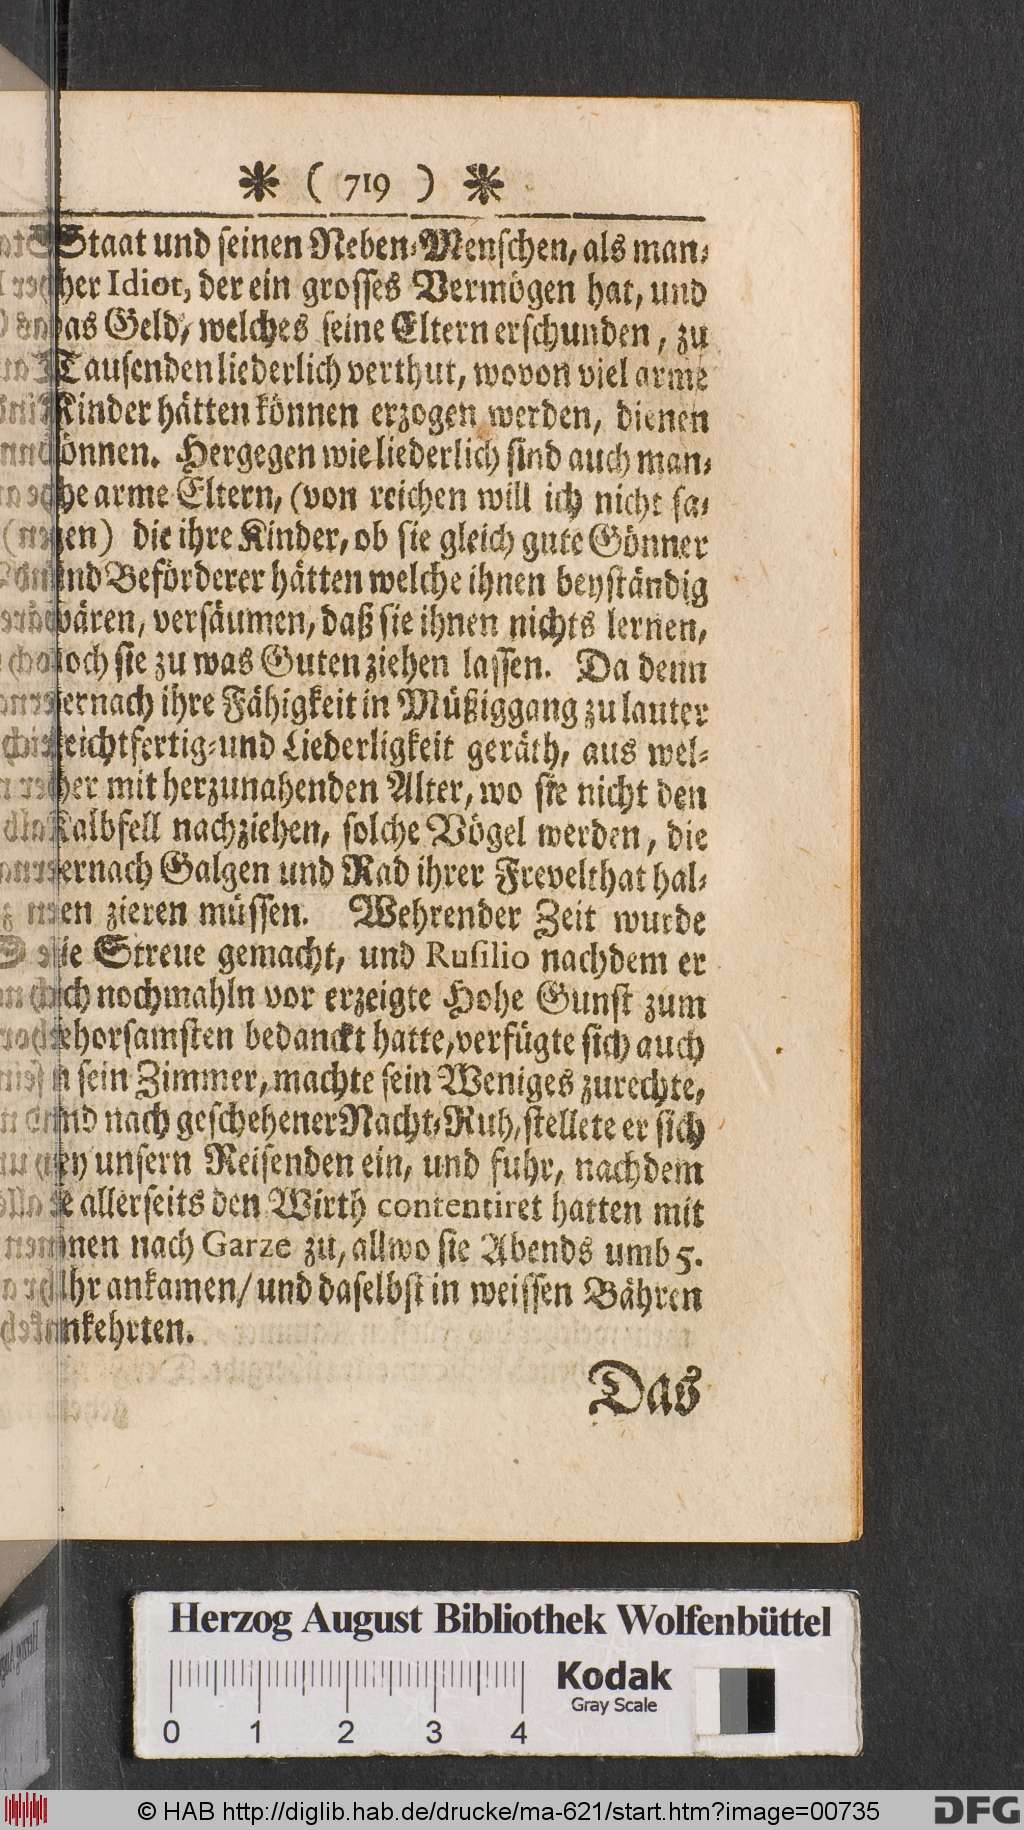 ❋ ( 719 ) ❋
Staat und seinen Neben-Menschen, als man-
cher Idiot, der ein grosses Vermögen hat, und
das Geld, welches seine Eltern erschunden, zu
Tausenden liederlich verthut, wovon viel arme
Kinder hätten können erzogen werden, dienen
können. Hergegen wie liederlich sind auch man-
che arme Eltern, (von reichen will ich nicht sa-
gen) die ihre Kinder, ob sie gleich gute Gönner
und Beförderer hätten welche ihnen beyständig
wären, versäumen, daß sie ihnen nichts lernen,
noch sie zu was Guten ziehen lassen. Da denn
hernach ihre Fähigkeit in Müßiggang zu lauter
Leichtfertig-und Liederligkeit geräth, aus wel-
cher mit herzunahenden Alter, wo sie nicht den
Kalbfell nachziehen, solche Vögel werden, die
hernach Galgen und Rad ihrer Frevelthat hal-
ben zieren müssen. Wehrender Zeit wurde
die Streue gemacht, und Rusilio nachdem er
sich nochmahln vor erzeigte Hohe Gunst zum
gehorsamsten bedanckt hatte, verfügte sich auch
in sein Zimmer, machte sein Weniges zurechte,
und nach geschehener Nacht-Ruh, stellete er sich
bey unsern Reisenden ein, und fuhr, nachdem
sie allerseits den Wirth contentiret hatten mit
ihnen nach Garze zu, allwo sie Abends umb 5.
Uhr ankamen/ und daselbst in weissen Bähren
einkehrten.
Das
Herzog August Bibliothek Wolfenbüttel
Kodak
Gray Scale
0 1 2 3 4
© HAB http://diglib.hab.de/drucke/ma-621/start.htm?image=00735
DFG